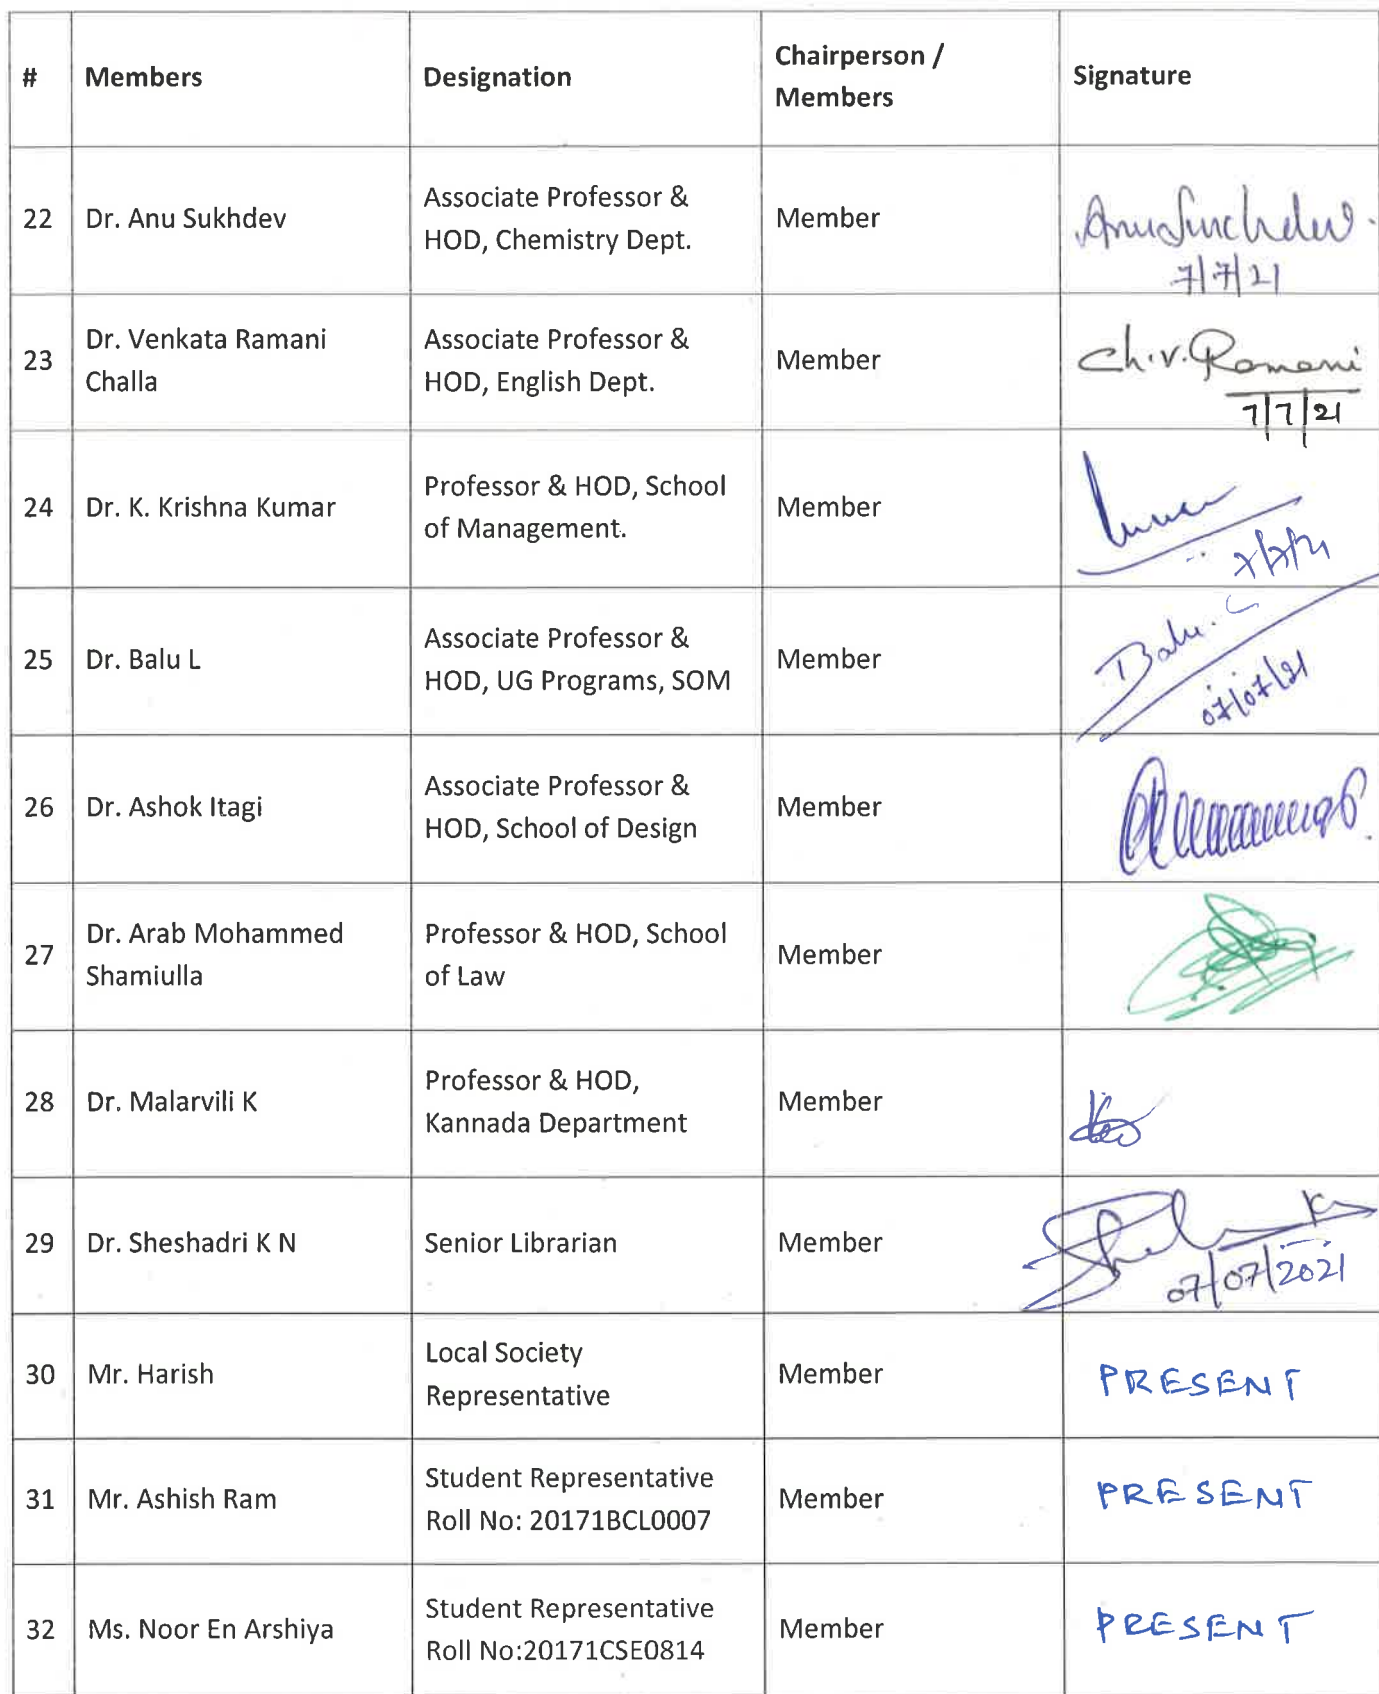 #
Members
Designation
Chairperson /
Members
Signature
22
Dr. Anu Sukhdev
Associate Professor &
HOD, Chemistry Dept.
Member
7/7/21
23
Dr. Venkata Ramani
Challa
Associate Professor &
HOD, English Dept.
Member
Ch.V.Ramani
7/7/21
24
Dr. K. Krishna Kumar
Professor & HOD, School
of Management.
Member
7/7/21
25
Dr. Balu L
Associate Professor &
HOD, UG Programs, SOM
Member
Balu. L
07/07/21
26
Dr. Ashok Itagi
Associate Professor &
HOD, School of Design
Member
27
Dr. Arab Mohammed
Shamiulla
Professor & HOD, School
of Law
Member
28
Dr. Malarvili K
Professor & HOD,
Kannada Department
Member
29
Dr. Sheshadri K N
Senior Librarian
Member
07/07/2021
30
Mr. Harish
Local Society
Representative
Member
PRESENT
31
Mr. Ashish Ram
Student Representative
Roll No: 20171BCL0007
Member
PRESENT
32
Ms. Noor En Arshiya
Student Representative
Roll No:20171CSE0814
Member
PRESENT